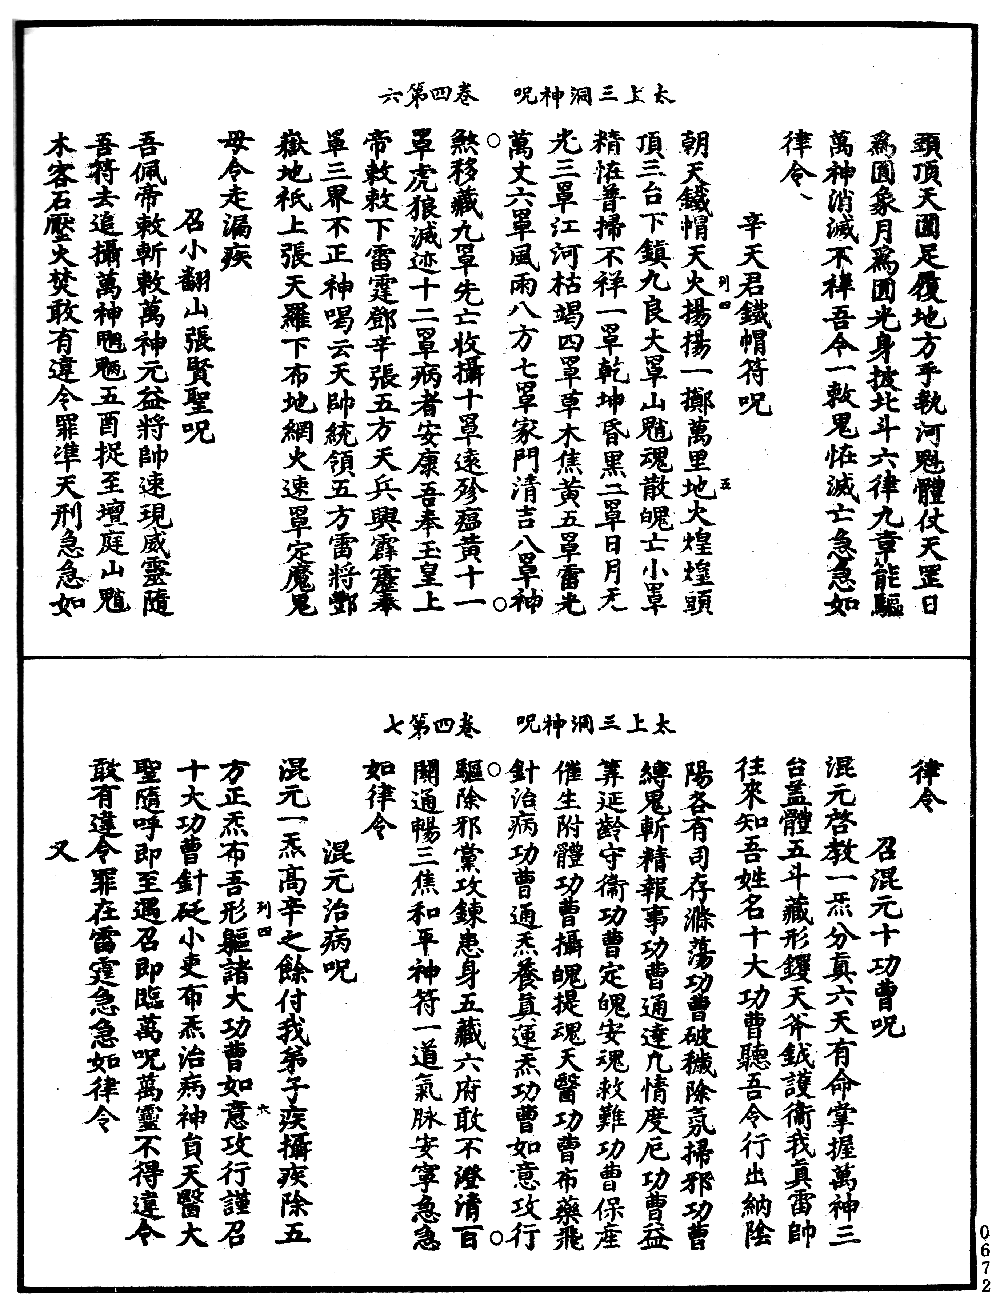 太上三洞神呪　卷四第六
頚頂天圓足履地方手執河魁體仗天罡日
爲圓象月爲圓光身披北斗六律九章能驅
萬神消滅不祥吾令一敕鬼恠滅亡急急如
律令
辛天君鐵帽符呪
朝天鐵帽天火揚揚一擲萬里地火煌煌頭
頂三台下鎮九良大罩山魈魂散魄亡小罩
精恠普掃不祥一罩乾坤昏黑二罩日月无
光三罩江河枯竭四罩草木焦黃五罩雷光
萬丈六罩風雨八方七罩家門清吉八罩神
煞移藏九罩先亡收攝十罩遠殄瘟黃十一
罩虎狼滅迹十二罩病者安康吾奉玉皇上
帝敕敕下雷霆鄧辛張五方天兵興霹靂奉
罩三界不正神喝云天帥統領五方雷將鄷
嶽地祇上張天羅下布地網火速罩定魔鬼
母令走漏疾
召小翻山張賢聖呪
吾佩帝敕斬敕萬神元益將帥速現威靈隨
吾符去追攝萬神魍魎五酉捉至壇庭山魈
木客石壓火焚敢有違令罪準天刑急急如
列四
五
太上三洞神呪　卷四第七
律令
召混元十功曹呪
混元啓教一炁分真六天有命掌握萬神三
台蓋體五斗藏形鑊天斧鉞護衛我真雷帥
往來知吾姓名十大功曹聽吾令行出納陰
陽各有司存滌蕩功曹破穢除氛掃邪功曹
縛鬼斬精報事功曹通達九情度厄功曹益
筭延齡守衛功曹定魄安魂救難功曹保產
催生附體功曹攝魄提魂天醫功曹布藥飛
針治病功曹通炁養真運炁功曹如意攻行
驅除邪黨攻鍊患身五藏六府敢不澄清百
關通暢三焦和平神符一道氣脉安寧急急
如律令
混元治病呪
混元一炁高辛之餘付我弟子疾攝疾除五
方正炁布吾形軀諸大功曹如意攻行謹召
十大功曹針砭小吏布炁治病神負天醫大
聖隨呼即至遇召即臨萬呪萬靈不得違令
敢有違令罪在雷霆急急如律令
又
列四
六
0672